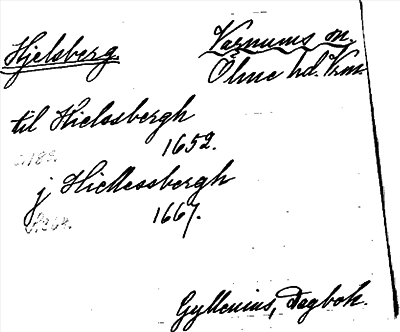 Hjelsberg. Varnums sn.
Ölme hd. Vrm.
til Hielssbergh
1652.
j Hiellessbergh
1667.
Gyllenius, Dagbok.